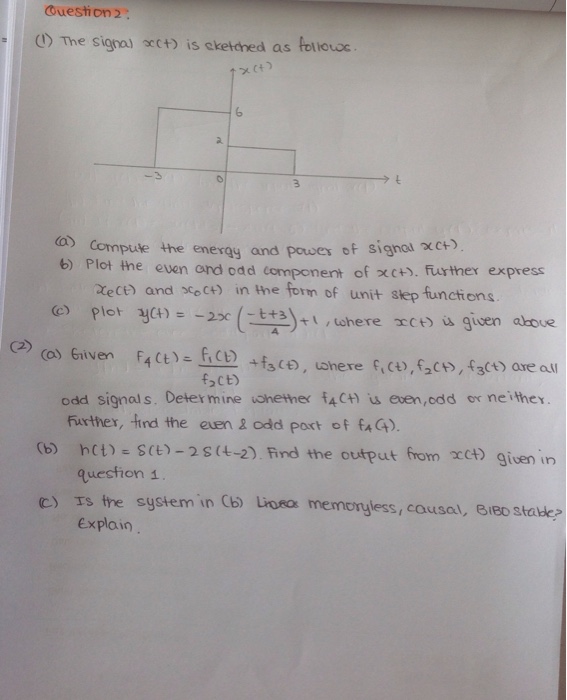 Question 2:
(1) The signal x(t) is sketched as follows.
x(t)
6
2
-3 0 3 t
(a) Compute the energy and power of signal x(t).
b) Plot the even and odd component of x(t). Further express
xe(t) and xo(t) in the form of unit step functions.
(c) plot y(t) = -2x (-t+3/4) +1, where x(t) is given above
(2) (a) Given f4(t) = f1(t)/f2(t) + f3(t), where f1(t), f2(t), f3(t) are all
odd signals. Determine whether f4(t) is even, odd or neither.
Further, find the even & odd part of f4(t).
(b) h(t) = δ(t) - 2δ(t-2). Find the output from x(t) given in
question 1.
(c) Is the system in (b) Linear memoryless, causal, BIBO stable?
Explain.